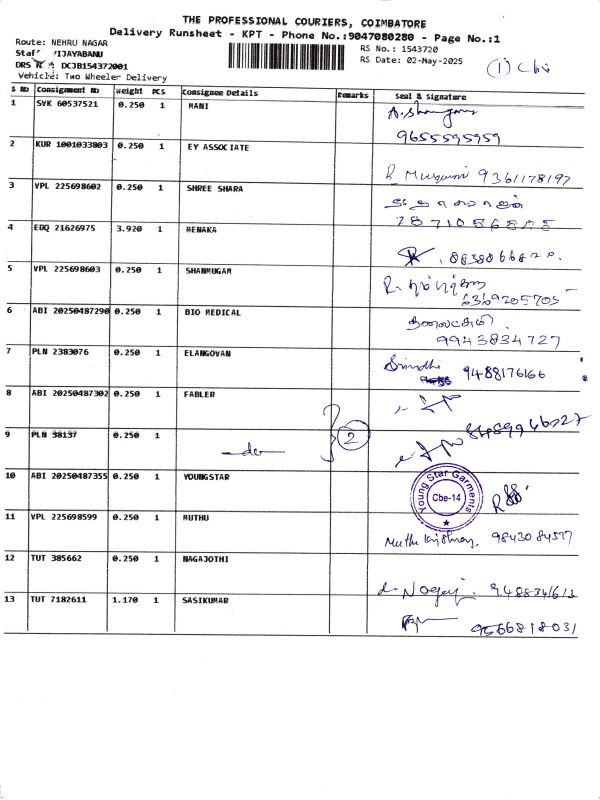 THE PROFESSIONAL COURIERS, COIMBATORE
Delivery Runsheet - KPT - Phone No.:9047080280 - Page No.:1
Route: NEHRU NAGAR
RS No.: 1543720
Staf VIJAYABANU
RS Date: 02-May-2025
DRS DCJB154372001
Vehicle: Two Wheeler Delivery
S NO Consignment NO Weight PCS Consignee Details Remarks Seal & Signature
1 SVK 60537521 0.250 1 MANI
9655595959
2 KUR 1001033803 0.250 1 EY ASSOCIATE
9361178197
3 VPL 225698602 0.250 1 SHREE SHARA
4 EDQ 21626975 3.920 1 MENAKA
5 VPL 225698603 0.250 1 SHANMUGAM
R.
6369205705
6 ABI 20250487290 0.250 1 BIO MEDICAL
9943834727
7 PLN 2383076 0.250 1 ELANGOVAN
9488176166
8 ABI 20250487302 0.250 1 FABLER
9 PLN 38137 0.250 1 -do-
2
10 ABI 20250487355 0.250 1 YOUNGSTAR
Young Star Garmens
Cbe-14
11 VPL 225698599 0.250 1 MUTHU
12 TUT 385662 0.250 1 NAGAJOTHI
13 TUT 7182611 1.170 1 SASIKUMAR
9566818031